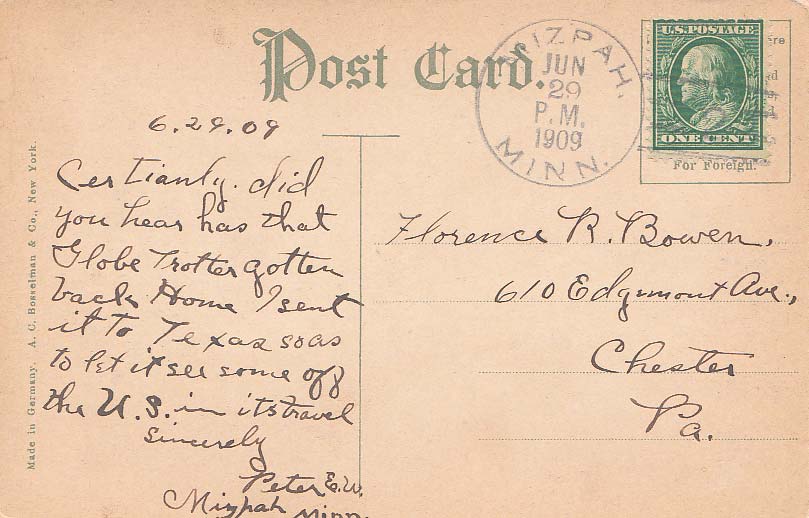 Post Card.
MIZPAH.
JUN
29
P.M.
1909
MINN.
U.S. POSTAGE
ONE CENT
For Foreign.
6.29.09
Certianly. did
you hear has that
Globe Trotter gotten
back Home I sent
it to Texas so as
to let it see some off
the U.S. in its travel
Sincerely
Peter E.W.
Mizpah Minn.
Florence R. Bowen,
610 Edgemont Ave.,
Chester
Pa.
Made in Germany. A. C. Bosselman & Co., New York.